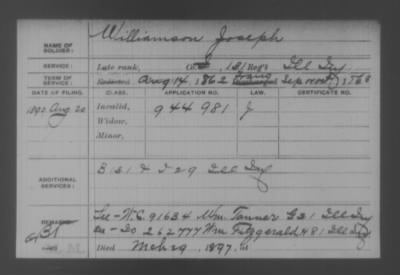 NAME OF SOLDIER: Williamson Joseph
SERVICE: Late rank, Co. 131 Reg't Ill Inf
TERM OF SERVICE: Enlisted Aug 14, 1862
DATE OF FILING. CLASS. APPLICATION NO. LAW. CERTIFICATE NO.
1890 Aug 20 Invalid, 944 981 J
Widow,
Minor,
ADDITIONAL SERVICES: B 131 & I 29 Ill Inf
REMARKS: See-W.C. 91634 Wm. Tanner G 31 Ill Inf
262777 Wm Fitzgerald 81 Ill Inf
Died Mch 29, 1897,